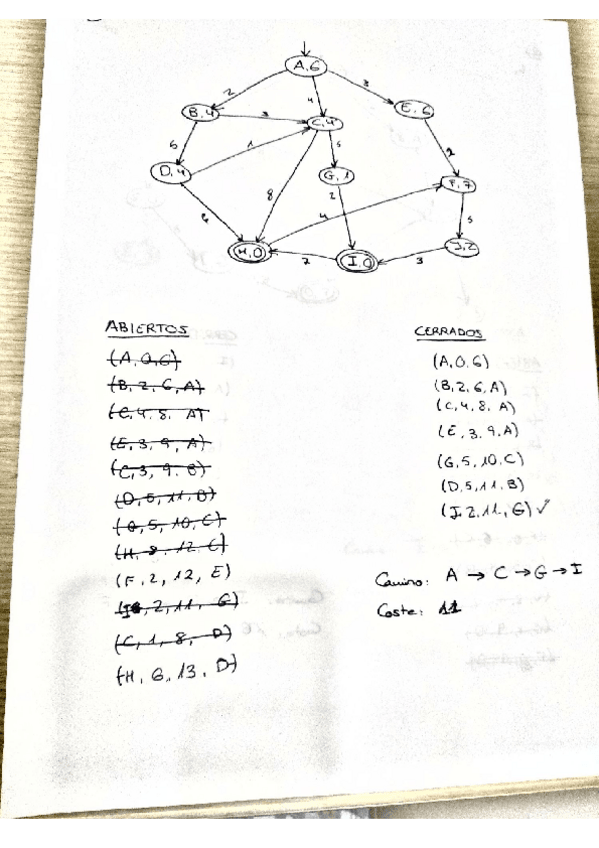 A, 6
2
4
3
B, 4
3
C, 4
E, 6
5
1
5
2
D, 4
G, 1
F, 7
8
2
4
5
H, 0
7
I, 0
3
J, 2
ABIERTOS
CERRADOS
(A, 0, 6)
(A, 0, 6)
(B, 2, 6, A)
(B, 2, 6, A)
(C, 4, 8, A)
(C, 4, 8, A)
(E, 3, 9, A)
(E, 3, 9, A)
(C, 3, 9, B)
(G, 5, 10, C)
(D, 5, 11, B)
(D, 5, 11, B)
(G, 5, 10, C)
(I, 2, 11, G) ✓
(H, 8, 12, C)
(F, 2, 12, E)
Camino: A → C → G → I
(I, 2, 11, G)
Coste: 11
(C, 1, 8, D)
(H, 6, 13, D)